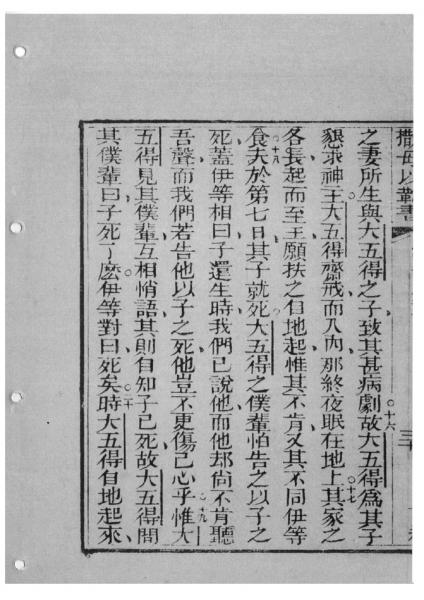 撒母以勒書
之妻所生與大五得之子致其甚病劇故○十六大五得為其子
懇求神王大五得齋戒而入內那終夜眠在地上○十七其家之
各長起而至王願扶之自地起惟其不肯又其不同伊等
食○十八夫於第七日其子就死大五得之僕輩怕告之以子之
死蓋伊等相曰子還生時我們已說他而他却尙不肯聽
吾聲而我們若告他以子之死他豈不更傷己心乎○十九惟大
五得見其僕輩互相悄語其則自知子已死故大五得問
其僕輩曰子死了麽伊等對曰死矣○二十時大五得自地起來